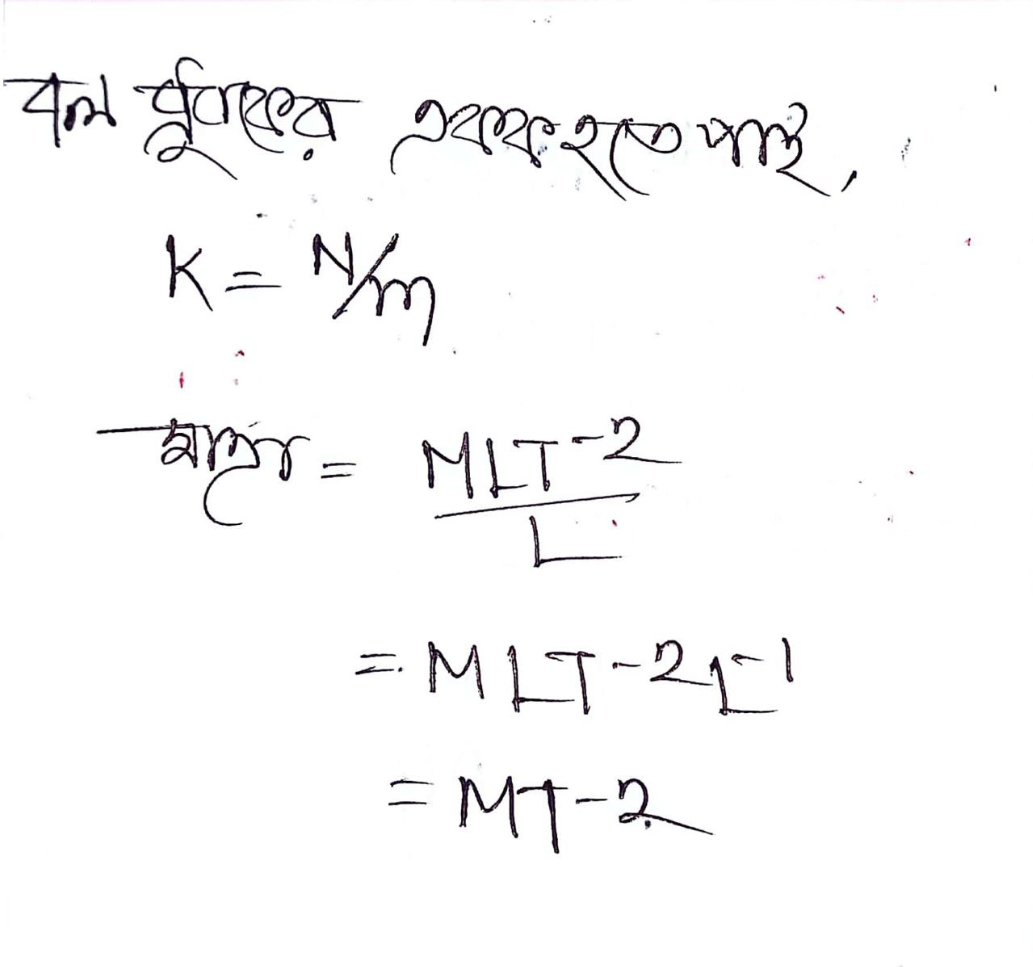 বল ধ্রুবকের একক হতে পাই,
K = N/m
= MLT-2 / L
= MLT-2L-1
= MT-2